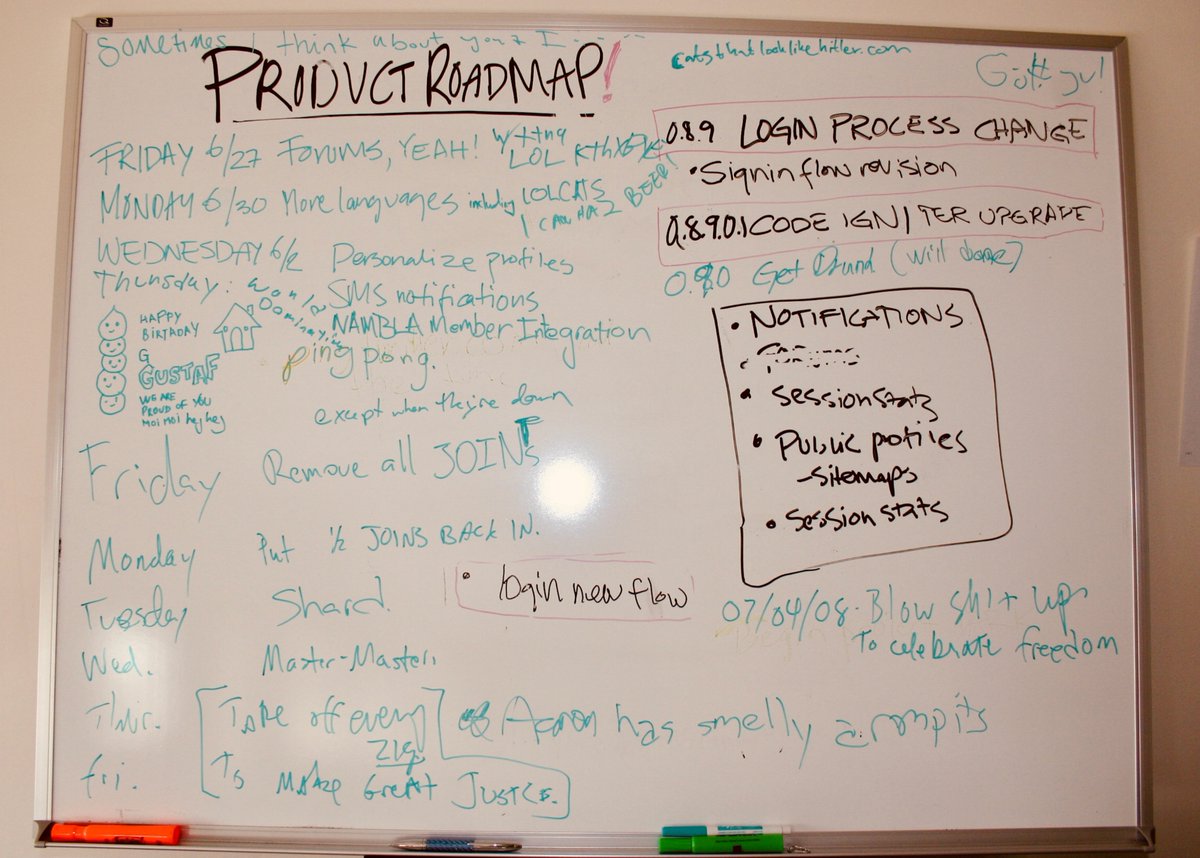 Sometimes I think about you & I.....
PRODUCT ROADMAP!
catsthatlooklikehitler.com
FRIDAY 6/27 Forums, YEAH! w/ ttnq
LOL KTHXBYE
MONDAY 6/30 More languages including LOLCATS
I CAN HAZ BEER!
WEDNESDAY 6/2 Personalize profiles
Thursday: World Domination
SMS notifications
NAMBLA Member Integration
ping pong.
except when they're down
HAPPY
BIRTADAY
G
GUSTAF
WE ARE
PROUD OF YOU
MOI MOI hej hej
Friday Remove all JOINS
Monday Put 1/2 JOINS BACK IN.
Tuesday Shard.
Wed. Master-Master.
Thur. Take off every Zig. Aaron has smelly armpits
Fri. To Make Great Justice.
0.8.9 LOGIN PROCESS CHANGE
• Signin flow revision
0.8.9.0.1 CODE IGNITER UPGRADE
0.9.0 Get Drunk (will done)
• NOTIFICATIONS
• Forums
• Session statz
• Public profiles
- sitemaps
• Session stats
• login new flow
07/04/08 - Blow sh!t up
To celebrate freedom